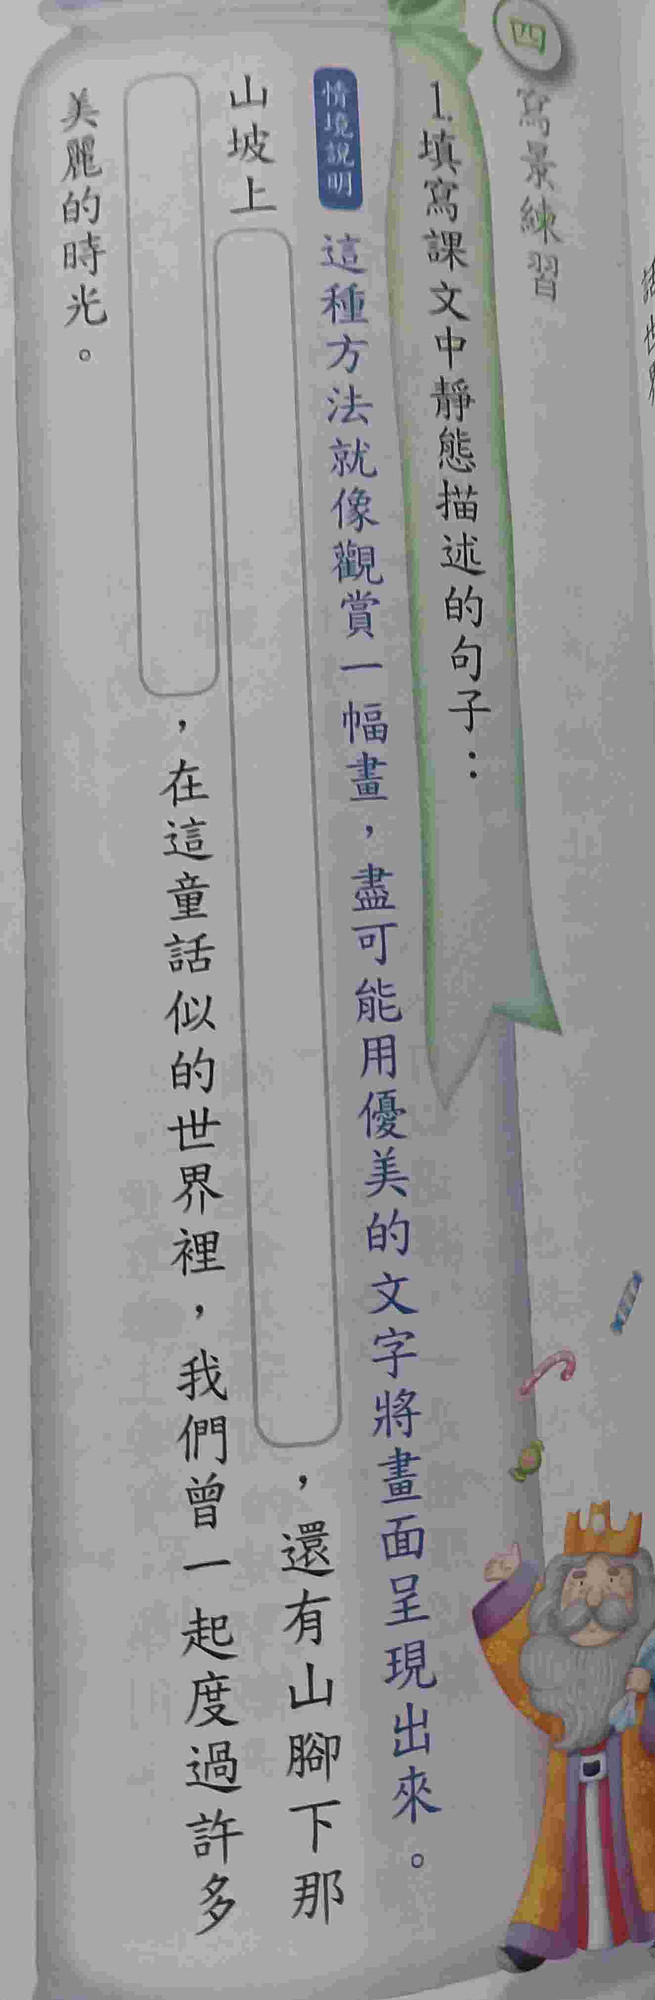 四
寫景練習
1.填寫課文中靜態描述的句子：
情境說明
這種方法就像觀賞一幅畫，盡可能用優美的文字將畫面呈現出來。
山坡上
，還有山腳下那
，在這童話似的世界裡，我們曾一起度過許多
美麗的時光。